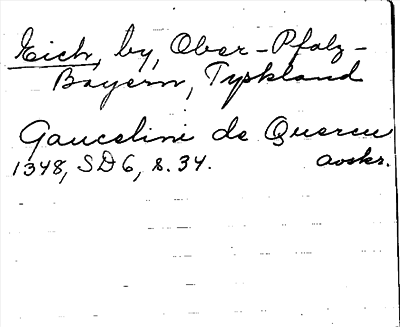 Eich, by, Ober-Pfalz-
Bayern, Tyskland
Gaucelini de Quercu
1348, SD6, s. 34. avskr.